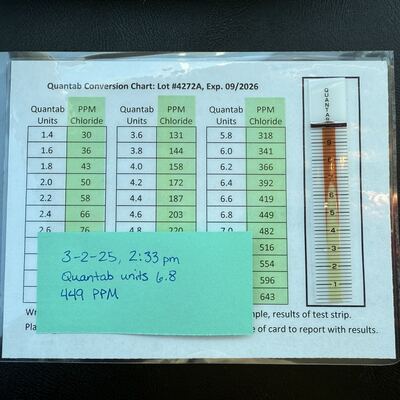 Quantab Conversion Chart: Lot #4272A, Exp. 09/2026
Quantab Units PPM Chloride Quantab Units PPM Chloride Quantab Units PPM Chloride
1.4 30 3.6 131 5.8 318
1.6 36 3.8 144 6.0 341
1.8 43 4.0 158 6.2 366
2.0 50 4.2 172 6.4 392
2.2 58 4.4 187 6.6 419
2.4 66 4.6 203 6.8 449
2.6 76 4.8 220 7.0 482
516
554
596
643
3-2-25, 2:33 pm
Quantab units 6.8
449 PPM
results of test strip.
of card to report with results.
QUANTAB
9
8
7
6
5
4
3
2
1